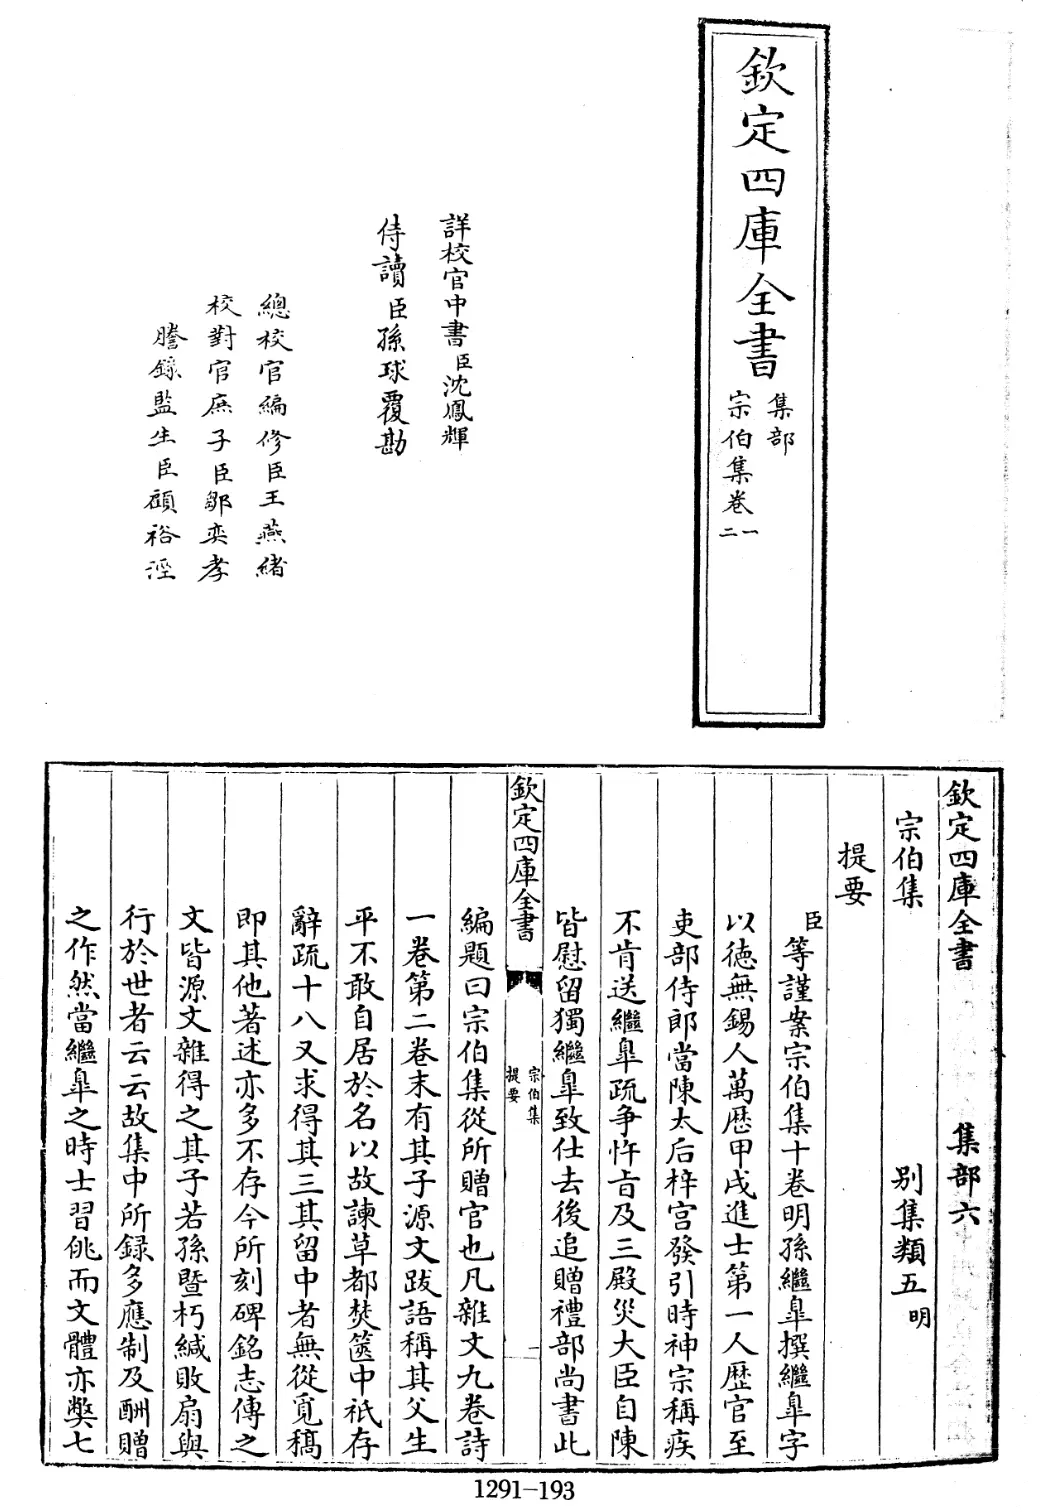 欽定四庫全書
集部
宗伯集卷一二
詳校官中書臣沈鳳輝
侍讀臣孫球覆勘
總校官編修臣王燕緒
校對官庶子臣鄒奕孝
謄錄監生臣顧裕𣵛
欽定四庫全書 集部六
宗伯集 别集類五明
提要
臣等謹案宗伯集十卷明孫繼臯撰繼臯字
以徳無錫人萬厯甲戌進士第一人歴官至
吏部侍郎當陳太后梓宫發引時神宗稱疾
不肯送繼臯疏争忤㫖及三殿災大臣自陳
皆慰留獨繼臯致仕去後追贈禮部尚書此
欽定四庫全書
宗伯集
提要
一
編題曰宗伯集從所贈官也凡雜文九卷詩
一卷第二卷末有其子源文跋語稱其父生
平不敢自居於名以故諫草都焚箧中祇存
辭疏十八又求得其三其留中者無從覓稿
即其他著述亦多不存今所刻碑銘志傳之
文皆源文雜得之其子若孫暨朽緘敗扇與
行於世者云云故集中所録多應制及酬贈
之作然當繼臯之時士習佻而文體亦弊七
1291-193